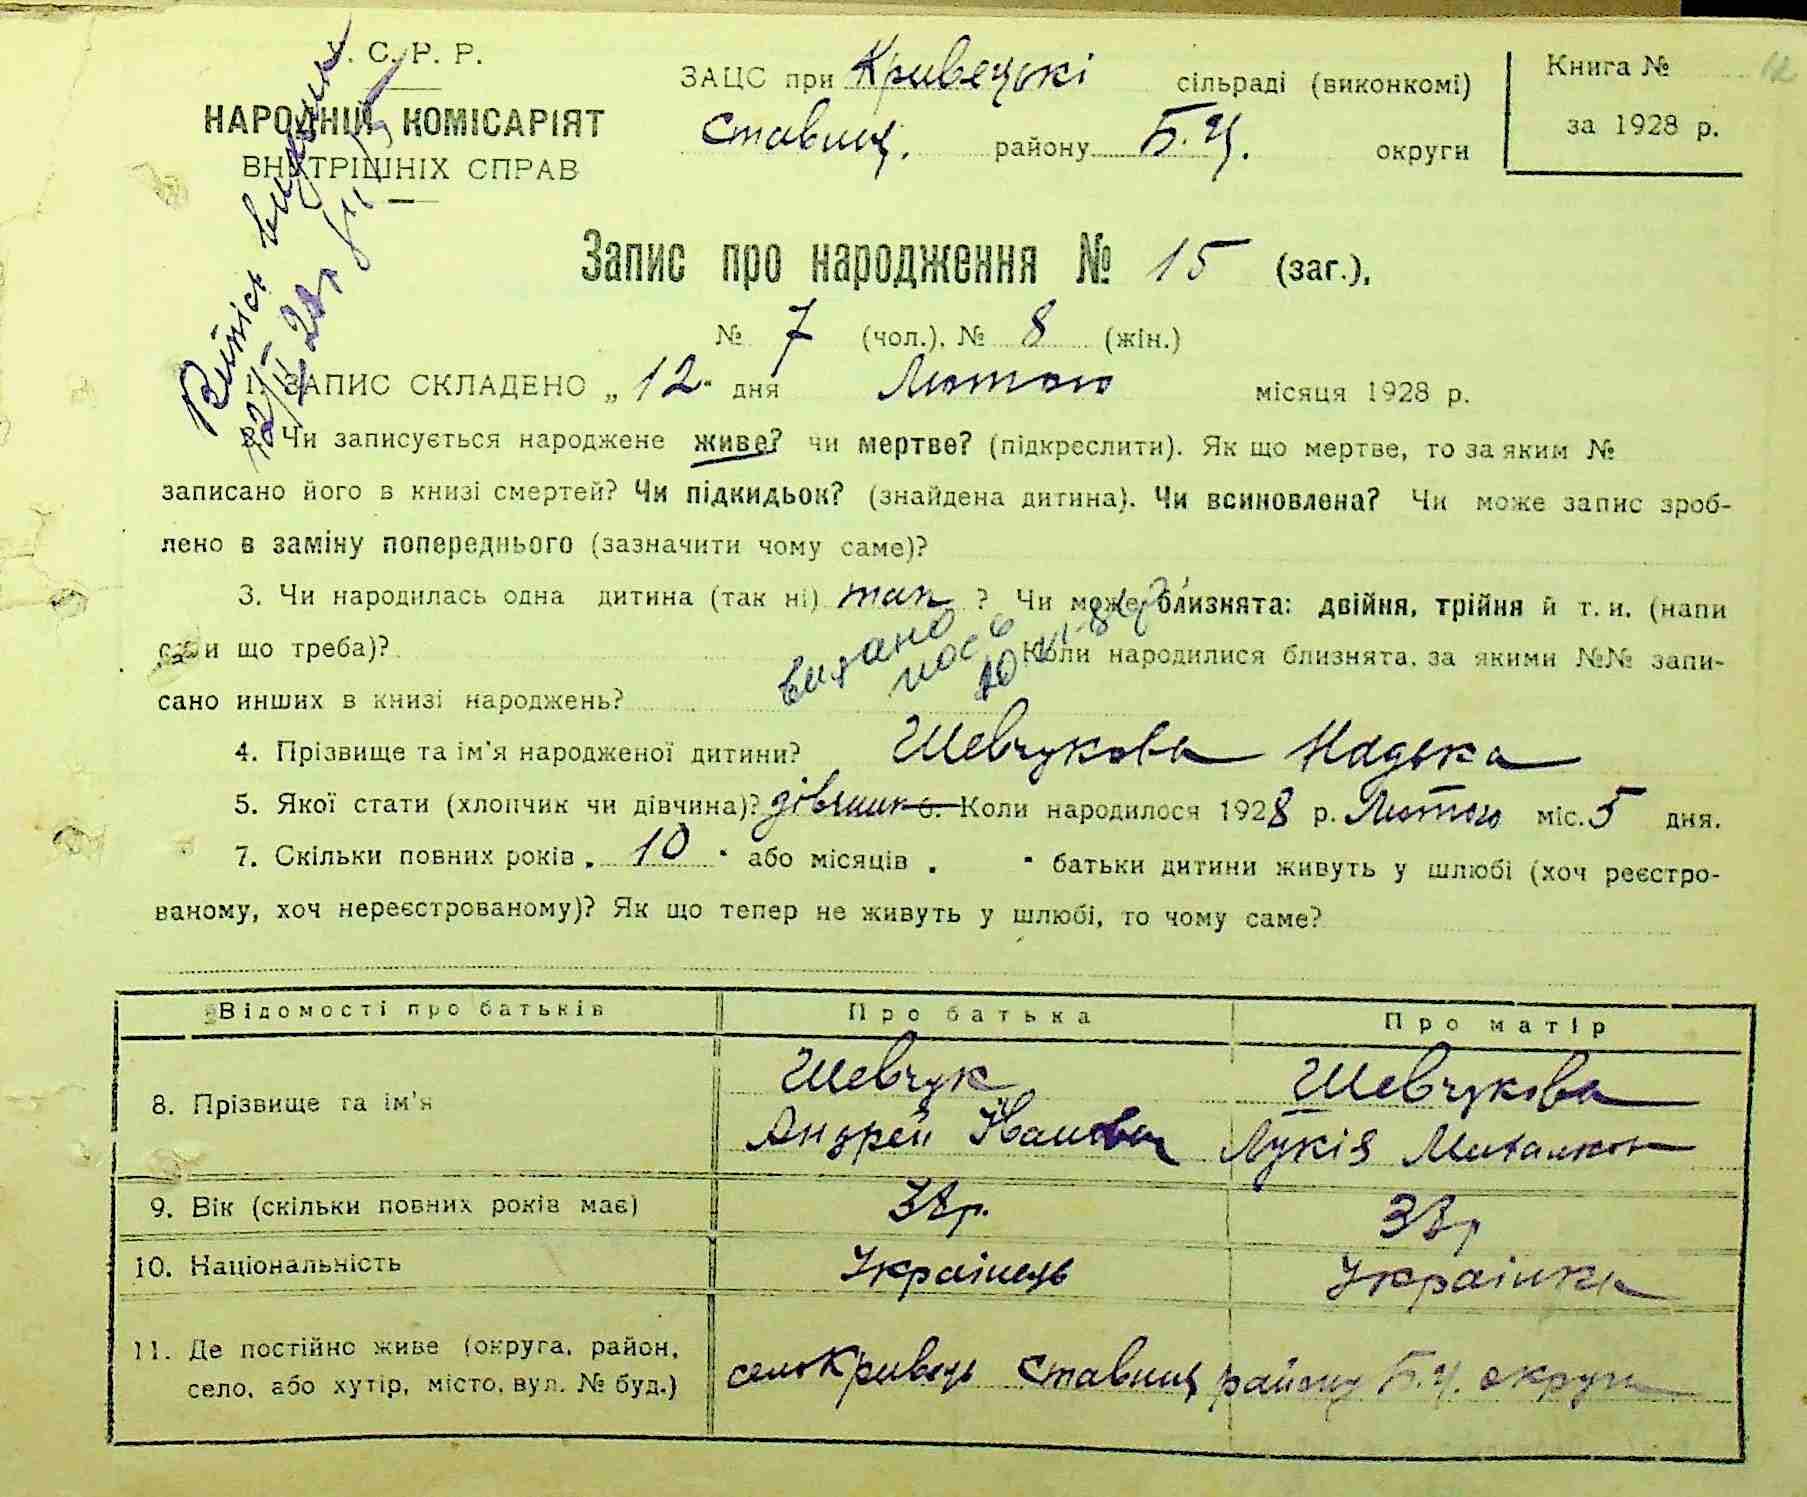 У. С. Р. Р.
НАРОДНІЙ КОМІСАРІЯТ
ВНУТРІШНІХ СПРАВ
ЗАЦС при Кривецькі сільраді (виконкомі)
Ставищ. району Б.Ц. округи
Книга № 12
за 1928 р.
Витяг видано
Запис про народження № 15 (заг.),
№ 7 (чол.), № 8 (жін.)
1. ЗАПИС СКЛАДЕНО „ 12 " дня Лютого місяця 1928 р.
Чи записується народжене живе? чи мертве? (підкреслити). Як що мертве, то за яким №
записано його в книзі смертей? Чи підкидьок? (знайдена дитина). Чи всиновлена? Чи може запис зроб-
лено в заміну попереднього (зазначити чому саме)?
3. Чи народилась одна дитина (так ні) так ? Чи може близнята: двійня, трійня й т. и. (напи
сати що треба)? Коли народилися близнята, за якими №№ запи-
сано инших в книзі народжень?
видано
4. Прізвище та ім'я народженої дитини? Шевчукова Надька
5. Якої стати (хлопчик чи дівчина)? дівчинка 6. Коли народилося 1928 р. Лютого міс. 5 дня.
7. Скільки повних років „ 10 " або місяців „ " батьки дитини живуть у шлюбі (хоч реєстро-
ваному, хоч нереєстрованому)? Як що тепер не живуть у шлюбі, то чому саме?
Відомості про батьків Про батька Про матір
8. Прізвище та ім'я Шевчук Шевчукова
Андрей Іванович Лукія
9. Вік (скільки повних років має) 38р. 38р
10. Національність Українець Українка
11. Де постійно живе (округа, район,
село, або хутір, місто, вул. № буд.) село Кривець Ставищ району Б.Ц. округи